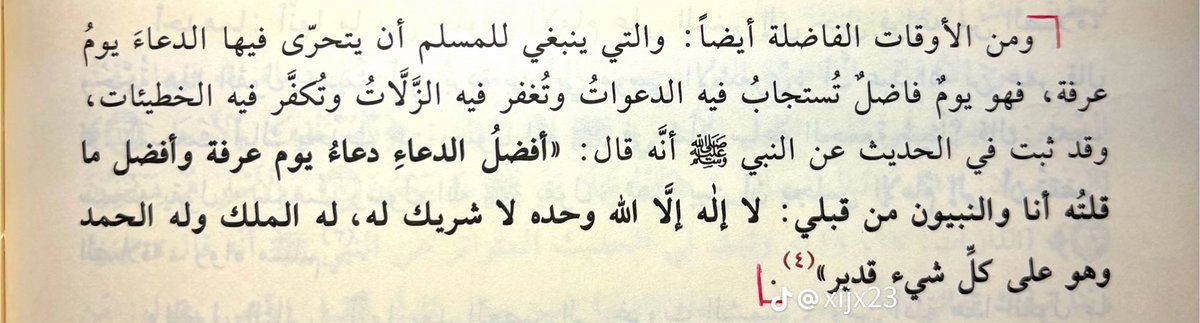 ومن الأوقات الفاضلة أيضاً: والتي ينبغي للمسلم أن يتحرّى فيها الدعاءَ يومُ
عرفة، فهو يومٌ فاضلٌ تُستجابُ فيه الدعواتُ وتُغفر فيه الزَّلَّاتُ وتُكفَّر فيه الخطيئات،
وقد ثبت في الحديث عن النبي ﷺ أنَّه قال: «أفضلُ الدعاءِ دعاءُ يوم عرفة وأفضل ما
قلتُه أنا والنبيون من قبلي: لا إلٰه إلَّا الله وحده لا شريك له، له الملك وله الحمد
وهو على كلِّ شيء قدير»(٤).
@xljx23